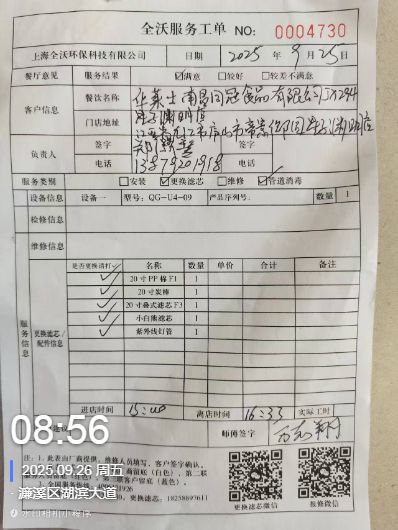 全沃服务工单 NO: 0004730
上海全沃环保科技有限公司 日期 2025年9月25日
餐厅意见 服务结果 ☑满意 □较好 □较差不满意
客户信息 餐饮名称 华莱士南昌同冠食品有限公司JX294
门店地址
负责人 签字 签字
电话 13879201918 电话
服务类别 □安装 ☑更换滤芯 □维修 ☑管道消毒
设备信息 设备一 型号: QG-U4-09 产品序列号: 数量 1
检修信息
维修信息
服务信息 更换滤芯/配件信息
是否更换请打✓ 名称 数量 单价 合计 备注
✓ 20寸PP棉F1 1
✓ 20寸炭棒 1
✓ 20寸叠式滤芯F3 1
✓ 小白熊滤芯 1
✓ 紫外线灯管 1
进店时间 15:40 离店时间 16:33 实际工时
师傅签字
注: 1、此表由厂商提供, 维修人员填写, 客户签字确认。
18258697611
更换滤芯微信 报修微信
08:56
2025.09.26 周五
濂溪区湖滨大道
水印相机小程序